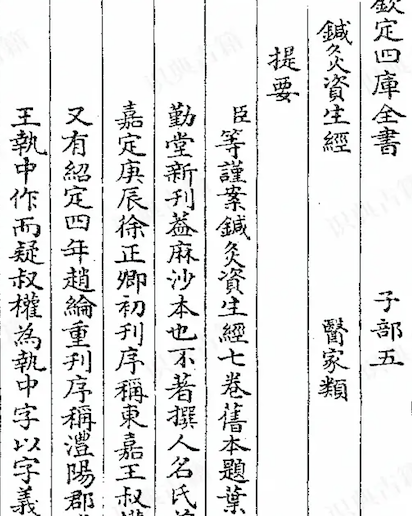 欽定四庫全書 子部五
鍼灸資生經 醫家類
提要
臣等謹案鍼灸資生經七卷舊本題葉
勤堂新刊葢麻沙本也不著撰人名氏
嘉定庚辰徐正卿初刊序稱東嘉王叔權
又有紹定四年趙綸重刊序稱澧陽郡
王執中作而疑叔權為執中字以字義